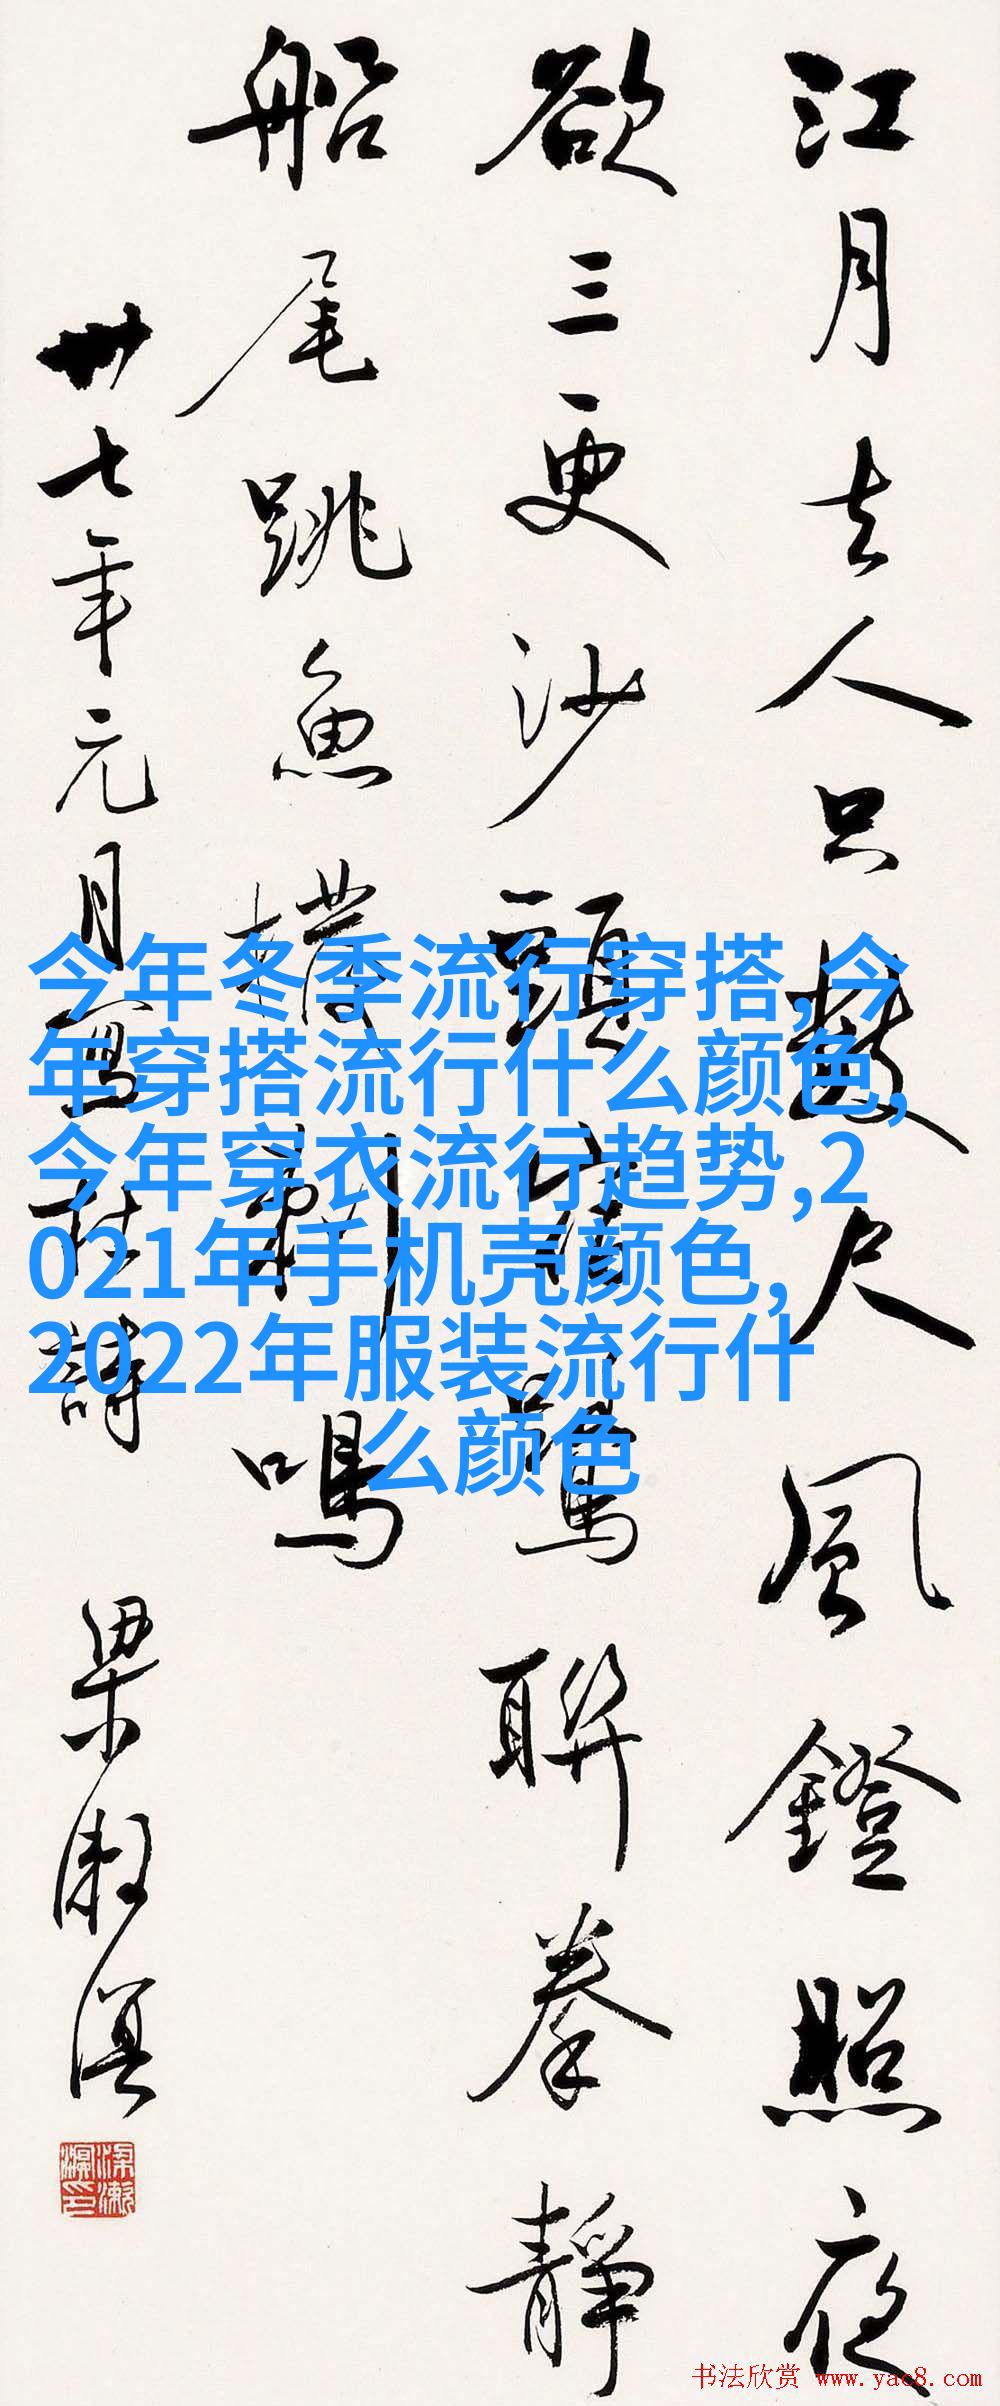 江月去人只數尺風鐙照夜
欲三更沙頭宿鷺聯拳靜
船尾跳魚撥剌鳴
卅七年元月寫杜詩 梁漱溟
梁漱溟印
今年冬季流行穿搭,今
年穿搭流行什么颜色,
今年穿衣流行趋势,2
021年手机壳颜色,
2022年服装流行什
么颜色
书法欣赏 www.yac8.com